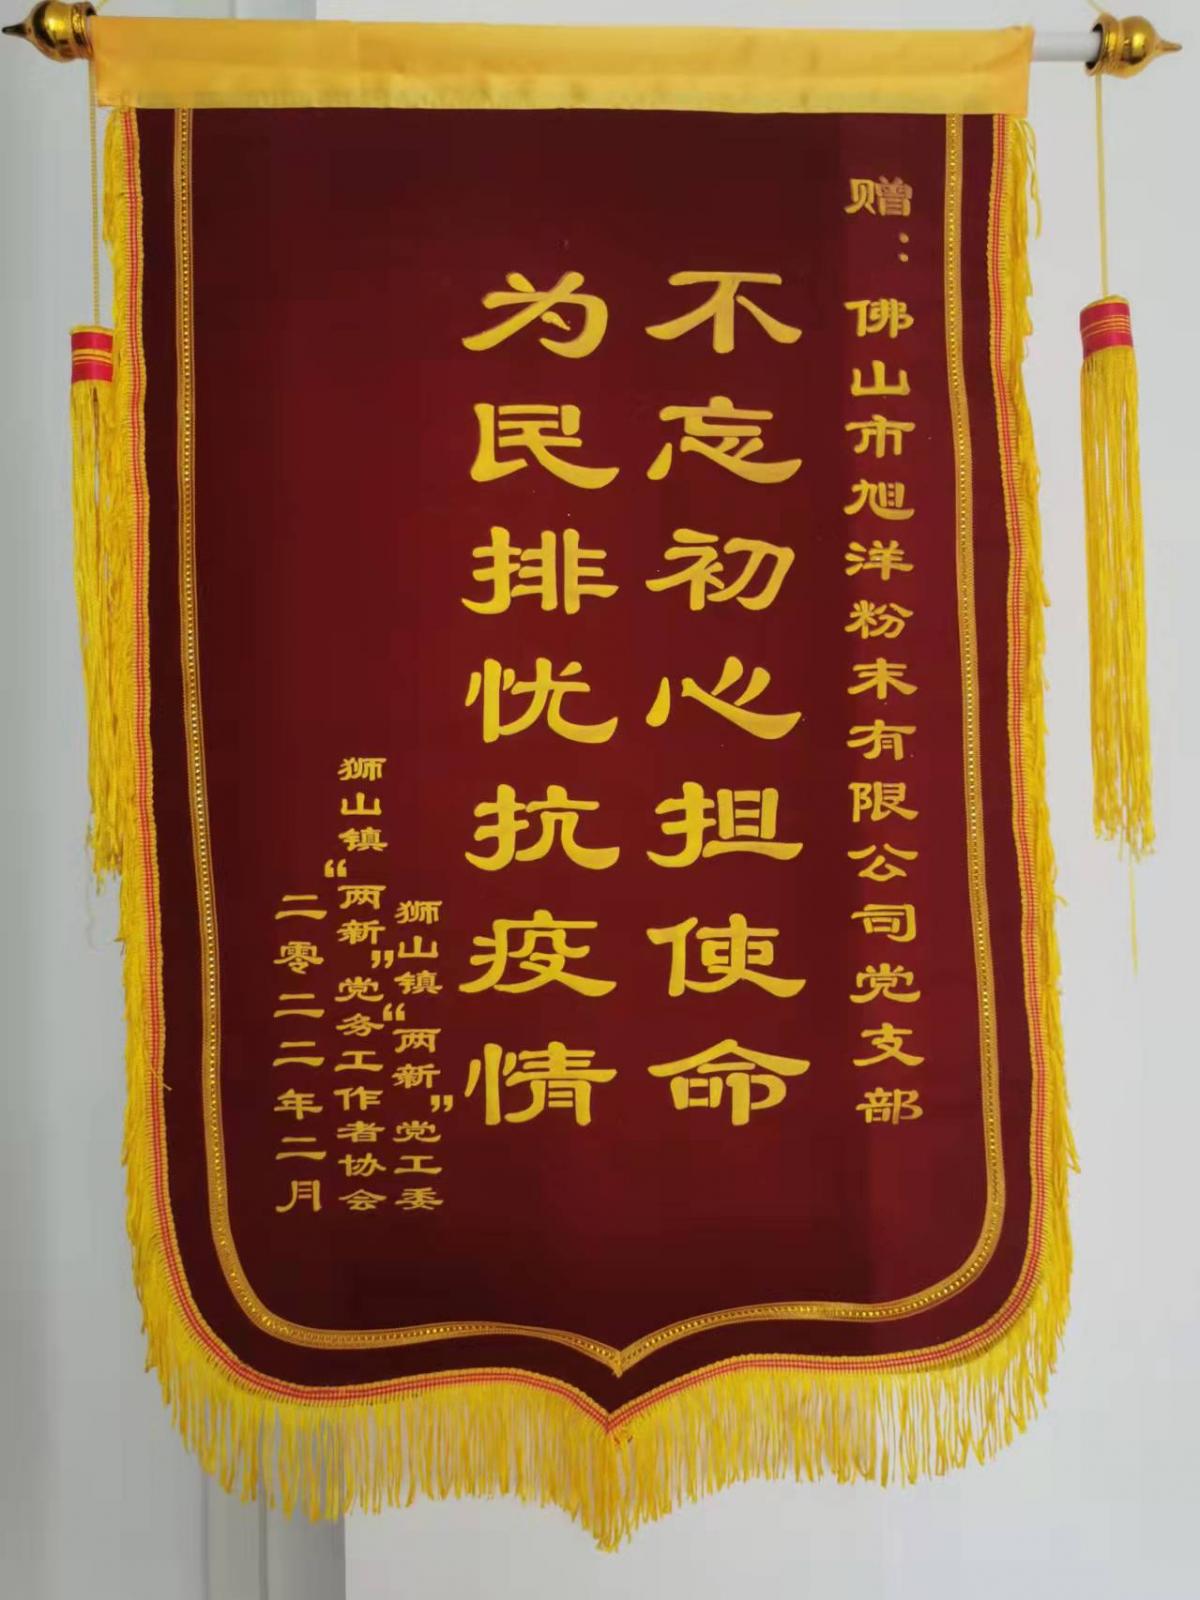 赠：佛山市旭洋粉末有限公司党支部
不忘初心担使命
为民排忧抗疫情
狮山镇“两新”党工委
狮山镇“两新”党务工作者协会
二零二二年二月